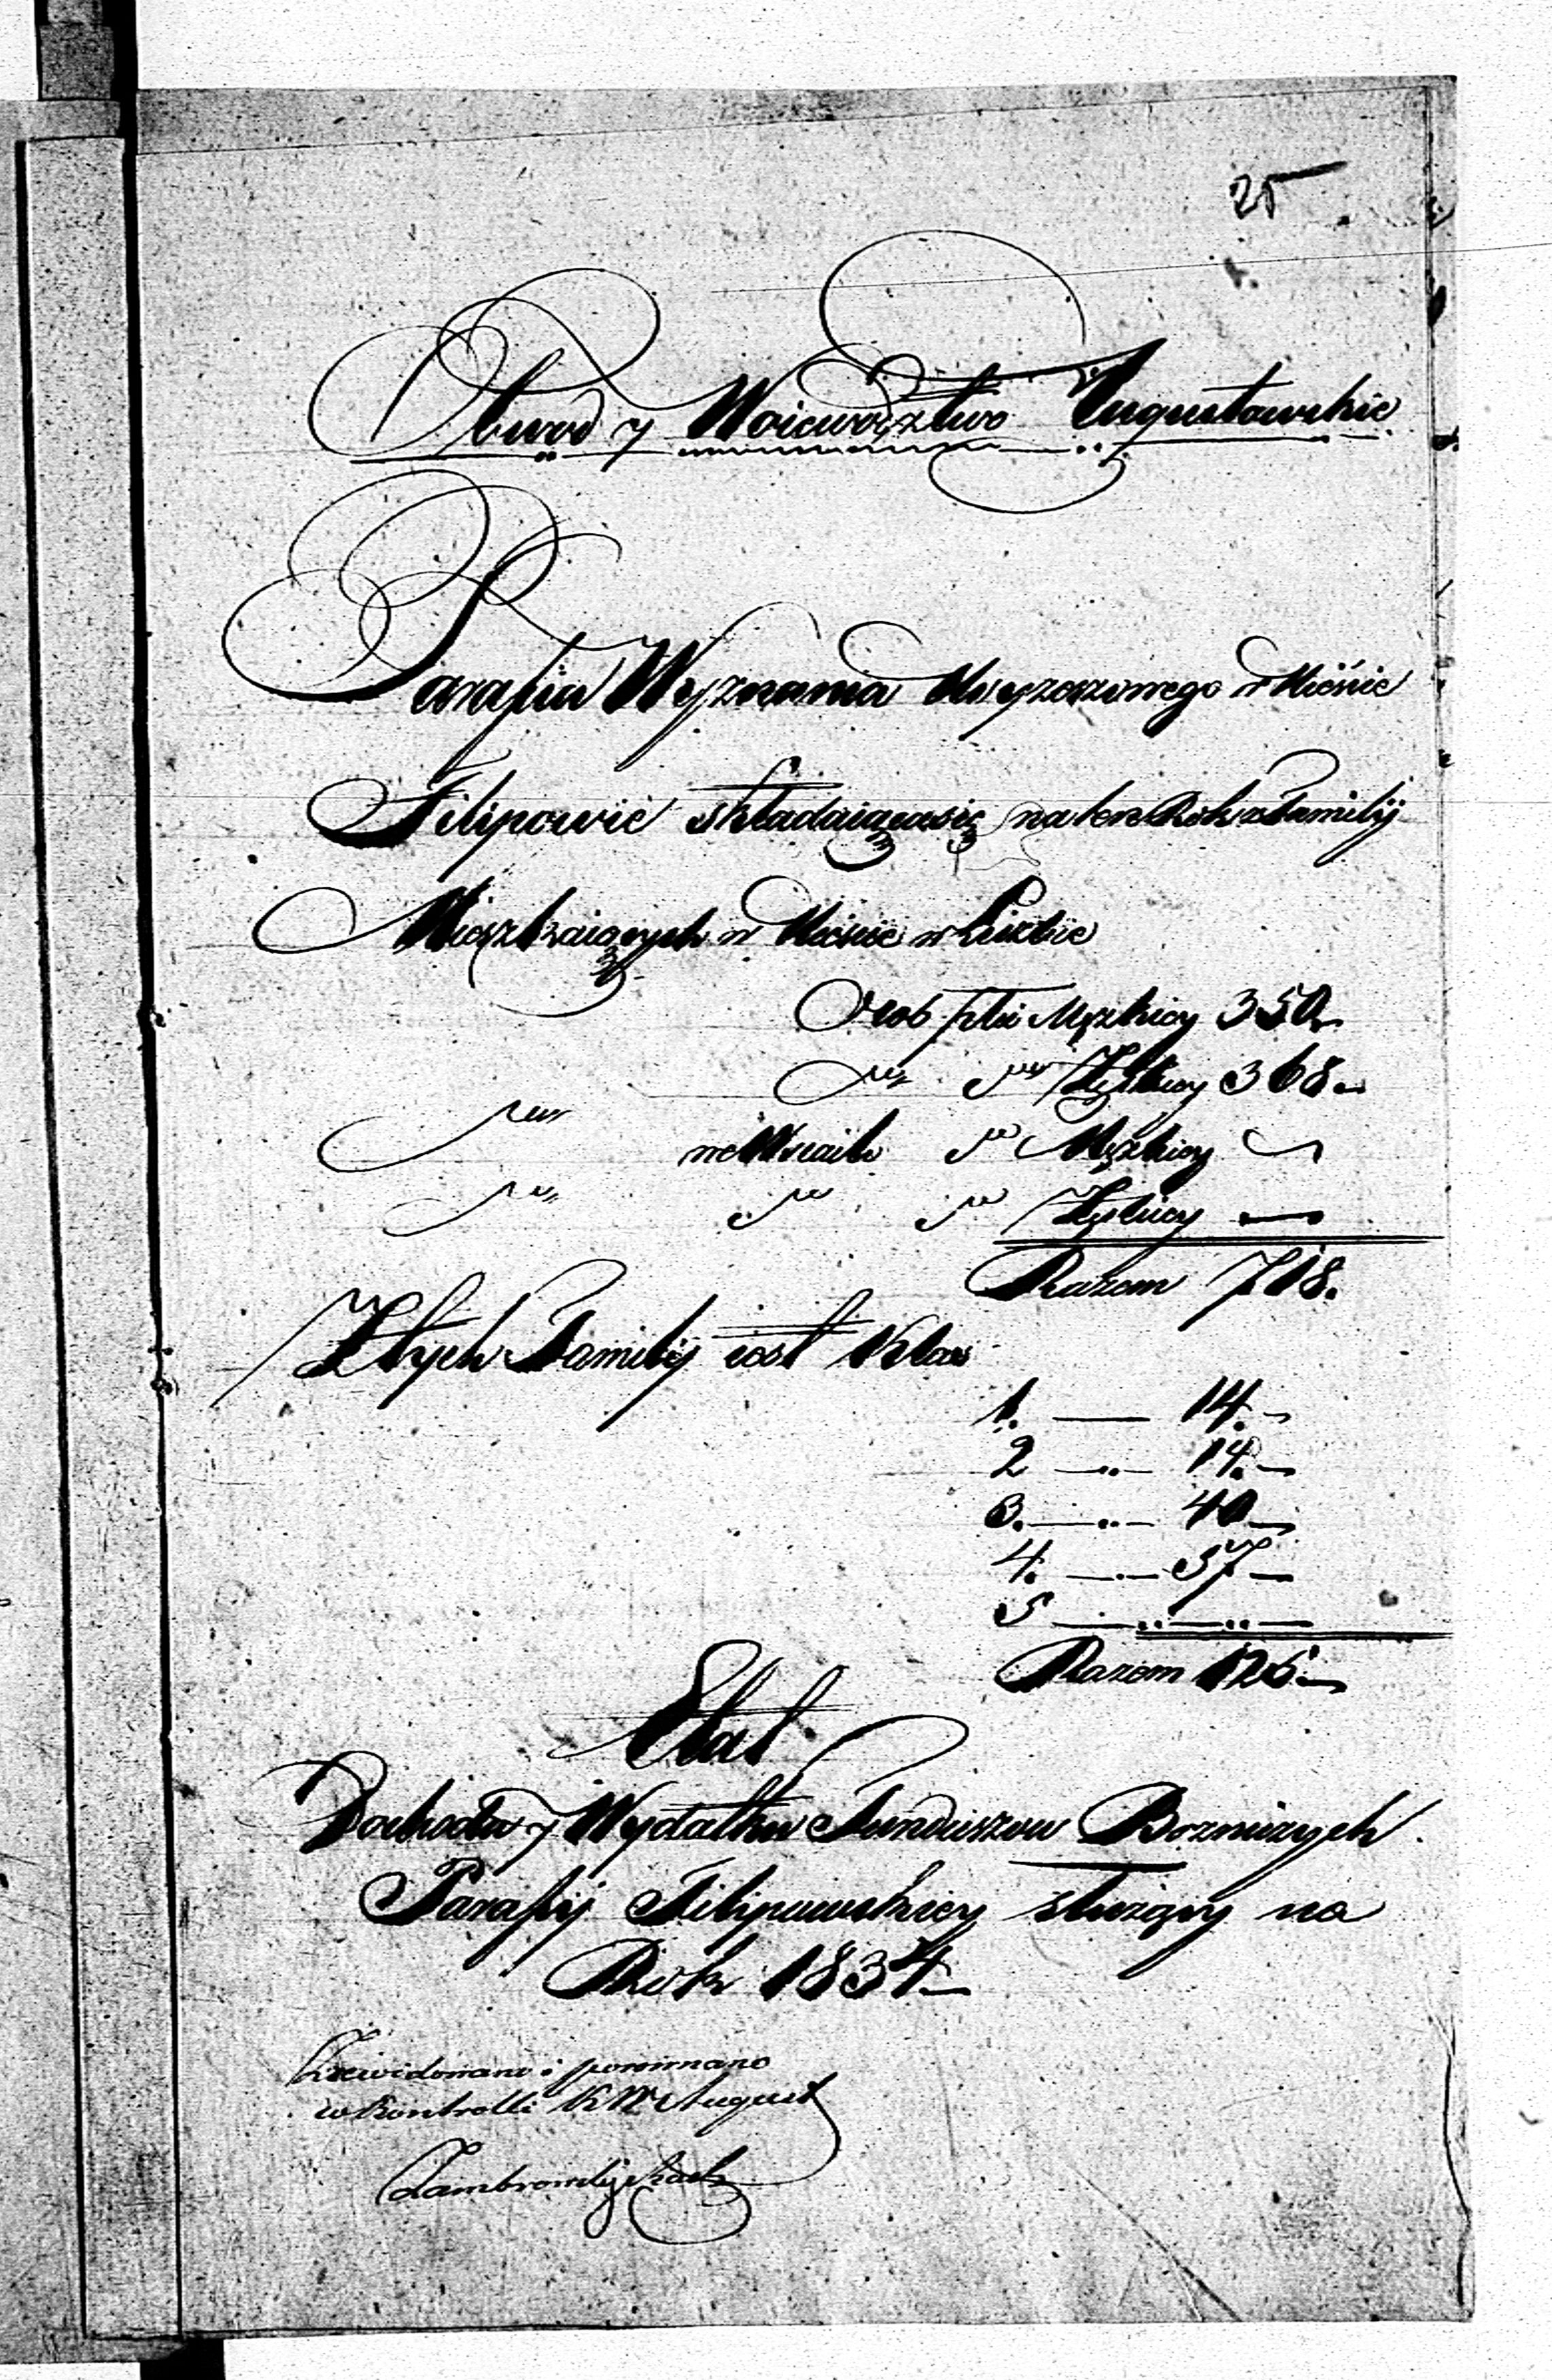 25
Obwod y Woiewodztwo Augustowskie
Parafia Wyznania Moyzeszowego w Mieście
Filipowie składaiąca się na ten Rok z Familij
Mieszkaiących w Mieście w Liczbie
Osob płci Męzkiey 350
Zęskiey 368
we Wsiach Męzkiey
Zęskiey —
Razem 718.
Z tych Familij iest Klas
1. — 14. —
2 — „ — 14. —
3. — „ — 40 —
4. — „ — 57 —
5 — „ — „ —
Razem 125. —
Etat
Dochodu y Wydatku Funduszow Boznicznych
Parafij Filipowskiey służący na
Rok 1834 —
Zrewidowano i porównano
w Kontrolli K W August